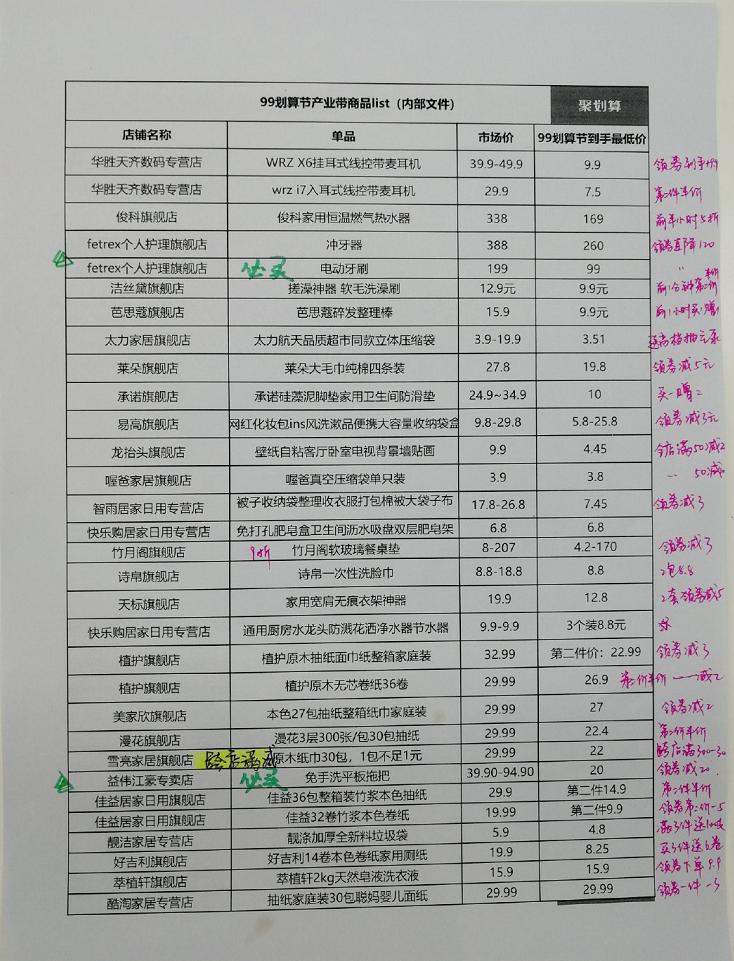 99划算节产业带商品list（内部文件） 聚划算
店铺名称 单品 市场价 99划算节到手最低价
华胜天齐数码专营店 WRZ X6挂耳式线控带麦耳机 39.9-49.9 9.9 领券到手价
华胜天齐数码专营店 wrz i7入耳式线控带麦耳机 29.9 7.5 第二件半价
俊科旗舰店 俊科家用恒温燃气热水器 338 169 前半小时5折
fetrex个人护理旗舰店 冲牙器 388 260 领券直降120
fetrex个人护理旗舰店 必买 电动牙刷 199 99 "
洁丝黛旗舰店 搓澡神器 软毛洗澡刷 12.9元 9.9元 前1分钟第二件半价
芭思蔻旗舰店 芭思蔻碎发整理棒 15.9 9.9元 前1小时买1赠1
太力家居旗舰店 太力航天品质超市同款立体压缩袋 3.9-19.9 3.51
莱朵旗舰店 莱朵大毛巾纯棉四条装 27.8 19.8 领券减5元
承诺旗舰店 承诺硅藻泥脚垫家用卫生间防滑垫 24.9~34.9 10 买一赠二
易高旗舰店 网红化妆包ins风洗漱品便携大容量收纳袋盒 9.8-29.8 5.8-25.8 领券减3元
龙抬头旗舰店 壁纸自粘客厅卧室电视背景墙贴画 9.9 4.45 全店满50减2
喔爸家居旗舰店 喔爸真空压缩袋单只装 3.9 3.8 50减
智雨居家日用专营店 被子收纳袋整理收衣服打包棉被大袋子布 17.8-26.8 7.45 领券减3
快乐购居家日用专营店 免打孔肥皂盒卫生间沥水吸盘双层肥皂架 6.8 6.8
竹月阁旗舰店 9折 竹月阁软玻璃餐桌垫 8-207 4.2-170 领券减3
诗帛旗舰店 诗帛一次性洗脸巾 8.8-18.8 8.8 2包8.8
天标旗舰店 家用宽肩无痕衣架神器 19.9 12.8 2套领券减5
快乐购居家日用专营店 通用厨房水龙头防溅花洒净水器节水器 9.9-9.9 3个装8.8元
植护旗舰店 植护原木抽纸面巾纸整箱家庭装 32.99 第二件价：22.99 领券减3
植护旗舰店 植护原木无芯卷纸36卷 29.99 26.9 第二件半价 一减2
美家欣旗舰店 本色27包抽纸整箱纸巾家庭装 29.99 27 领券减2
漫花旗舰店 漫花3层300张/包30包抽纸 29.99 22.4 第二件半价
雪亮家居旗舰店 跨店满减 原木纸巾30包，1包不足1元 29.99 22 跨店满300-30
益伟江豪专卖店 必买 免手洗平板拖把 39.90-94.90 20 领券减20
佳益居家日用旗舰店 佳益36包整箱装竹浆本色抽纸 29.9 第二件14.9 第二件半价
佳益居家日用旗舰店 佳益32卷竹浆本色卷纸 19.99 第二件9.9 领券第二价-5
靓洁家居专营店 靓涤加厚全新料垃圾袋 5.9 4.8
好吉利旗舰店 好吉利14卷本色卷纸家用厕纸 19.9 8.25 买3件送6卷
萃植轩旗舰店 萃植轩2kg天然皂液洗衣液 15.9 15.9 领券下单9.9
酷淘家居专营店 抽纸家庭装30包聪妈婴儿面纸 29.99 29.99 领券一件-3